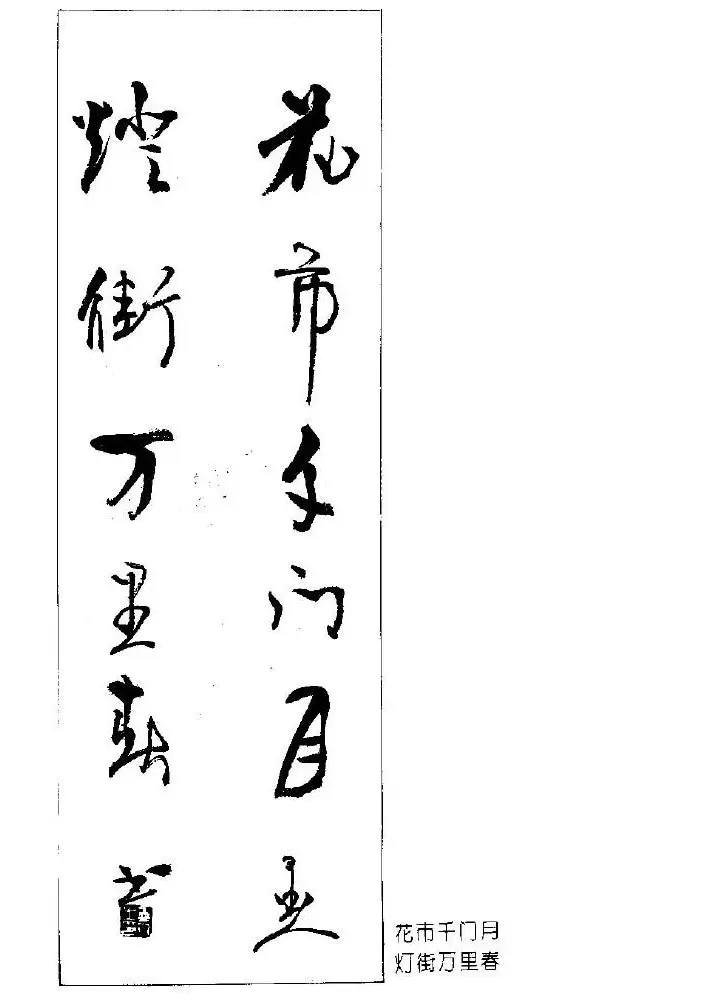 花市千门月
燈街万里春书
花市千门月
灯街万里春